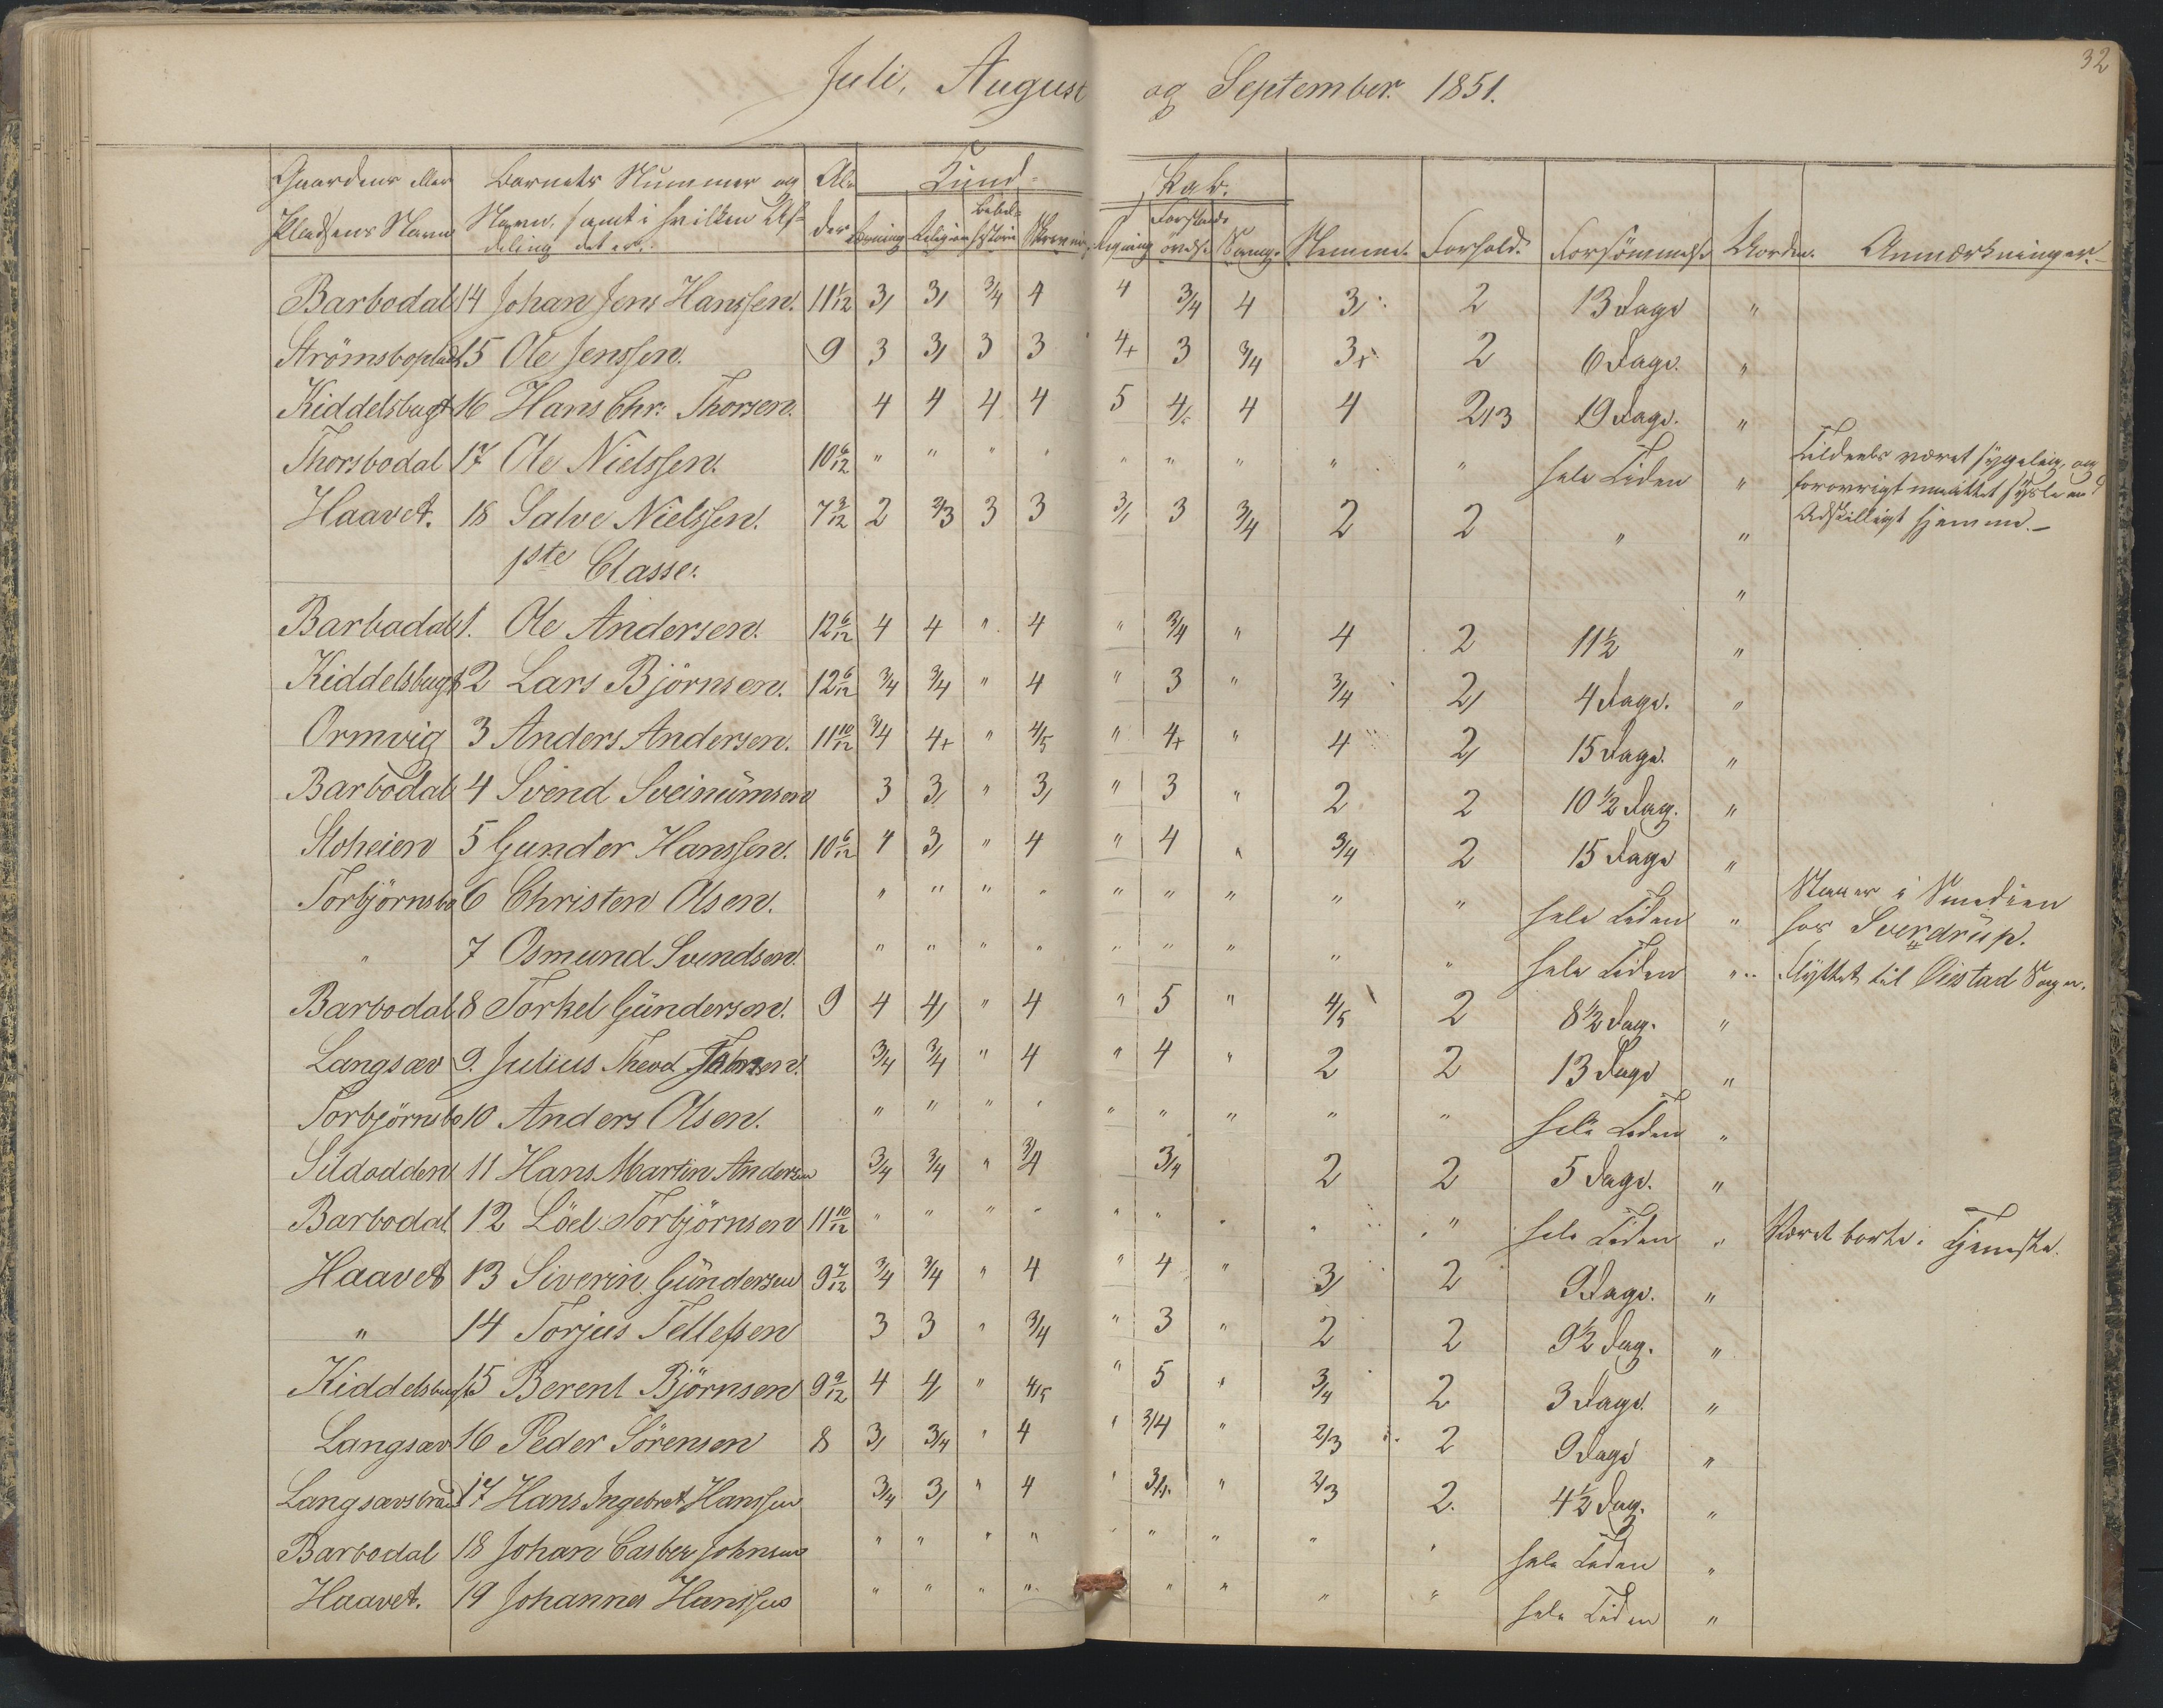 32
Juli, August og September 1851.
Gaardens eller Barnets Nummer og Al- Kund- skab.
Pladsens Navn Navn, samt i hvilken Af- der Læsning Religion Bibel- historie Skrivning Regning Forstands- övelse Sang. Nemme. Forhold. Forsömmelse Anmærkninger.
deling det er.
Barbodal 14 Johan Jens Hanssen. 11 1/12 3, 3, 3/4 4 4 3/4 4 3, 2 13 Dage "
Strömsboplads 15 Ole Jenssen. 9 3 3, 3 3 4+ 3 3/4 3+ 2 6 Dage. "
Kiddelsbugt 16 Hans Chr: Thorsen. 4 4 4 4 5 4/5 4 4 2/3 19 Dage. "
Thorsbodal 17 Ole Nielssen. 10 6/12 " " " " " " " " " hele Tiden " Tildeels været sygelig, og
forövrigt maattet sysle med
Haavet. 18 Salve Nielssen. 7 3/12 2 2/3 3 3 3/, 3 3/4 2 2 " " Adskilligt hjemme.-
1ste Classe. "
Barbodal 1. Ole Andersen. 12 6/12 4 4 " 4 " 3/4 " 4 2 11 1/2 "
Kiddelsbugt 2 Lars Björnsen. 12 6/12 3/4 3/4 " 4 " 3 " 3/4 2, 4 Dage. "
Ormvig 3 Anders Andersen. 11 10/12 3/4 4+ " 4/5 " 4+ " 4 2, 15 Dage. "
Barbodal 4 Svend Sveinümsen 3 3, " 3, " 3 " 2 2 10 1/2 Dag. "
Stoheien 5 Gunder Hanssen. 10 6/12 4 3, " 4 " 4 " 3/4 2 15 Dage "
Torbjörnsbo 6 Christen Olsen. " " " " " " " " " hele Tiden " Staaer i Smedien
hos Sverdrüp.
" 7 Osmund Svendsen. " " " " " " " " " hele Tiden " Flyttet til Öiestad Sogn.
Barbodal 8 Torkel Gündersen. 9 4 4, " 4 " 5 " 4/5 2 8 1/2 Dag. "
Langsæv 9. Julius Theod. 3/4 3/4 " 4 " 4 " 2 2 13 Dage "
Torbjörnsbo 10 Anders Olsen. " " " " " " " " " hele Tiden "
Sildodden 11 Hans Martin Andersen 3/4 3/4 " 3/4 3/4 2 2 5 Dage. "
Barbodal 12 Löel Torbjörnsen 11 10/12 " " " " " " " " " hele Tiden " Været borte i Tjeneste.
Haavet 13 Siverin Gündersen 9 7/12 3/4 3/4 " 4 " 4 " 3, 2 9 Dage. "
" 14 Torjus Tellefsen 3 3 " 3/4 " 3 " 2 2 9 1/2 Dag. "
Kiddelsbugt 15 Berent Björnsen 9 9/12 4 4, " 4/5 " 5 " 3/4 2 3 Dage. "
Langsæv 16 Peder Sörensen 8 3, 3/4 " 4 " 3/4 " 2/3 2 9 Dage "
17 Hans Ingebret Hanssen 3/4 3, " 4 " 3/4 " 2/3 2. 4 1/2 Dag. "
Barbodal 18 Johan Casber Johnsen " " " " " " " " " hele Tiden "
Haavet. 19 Johannes Hanssen " " " " " " " " hele Tiden "